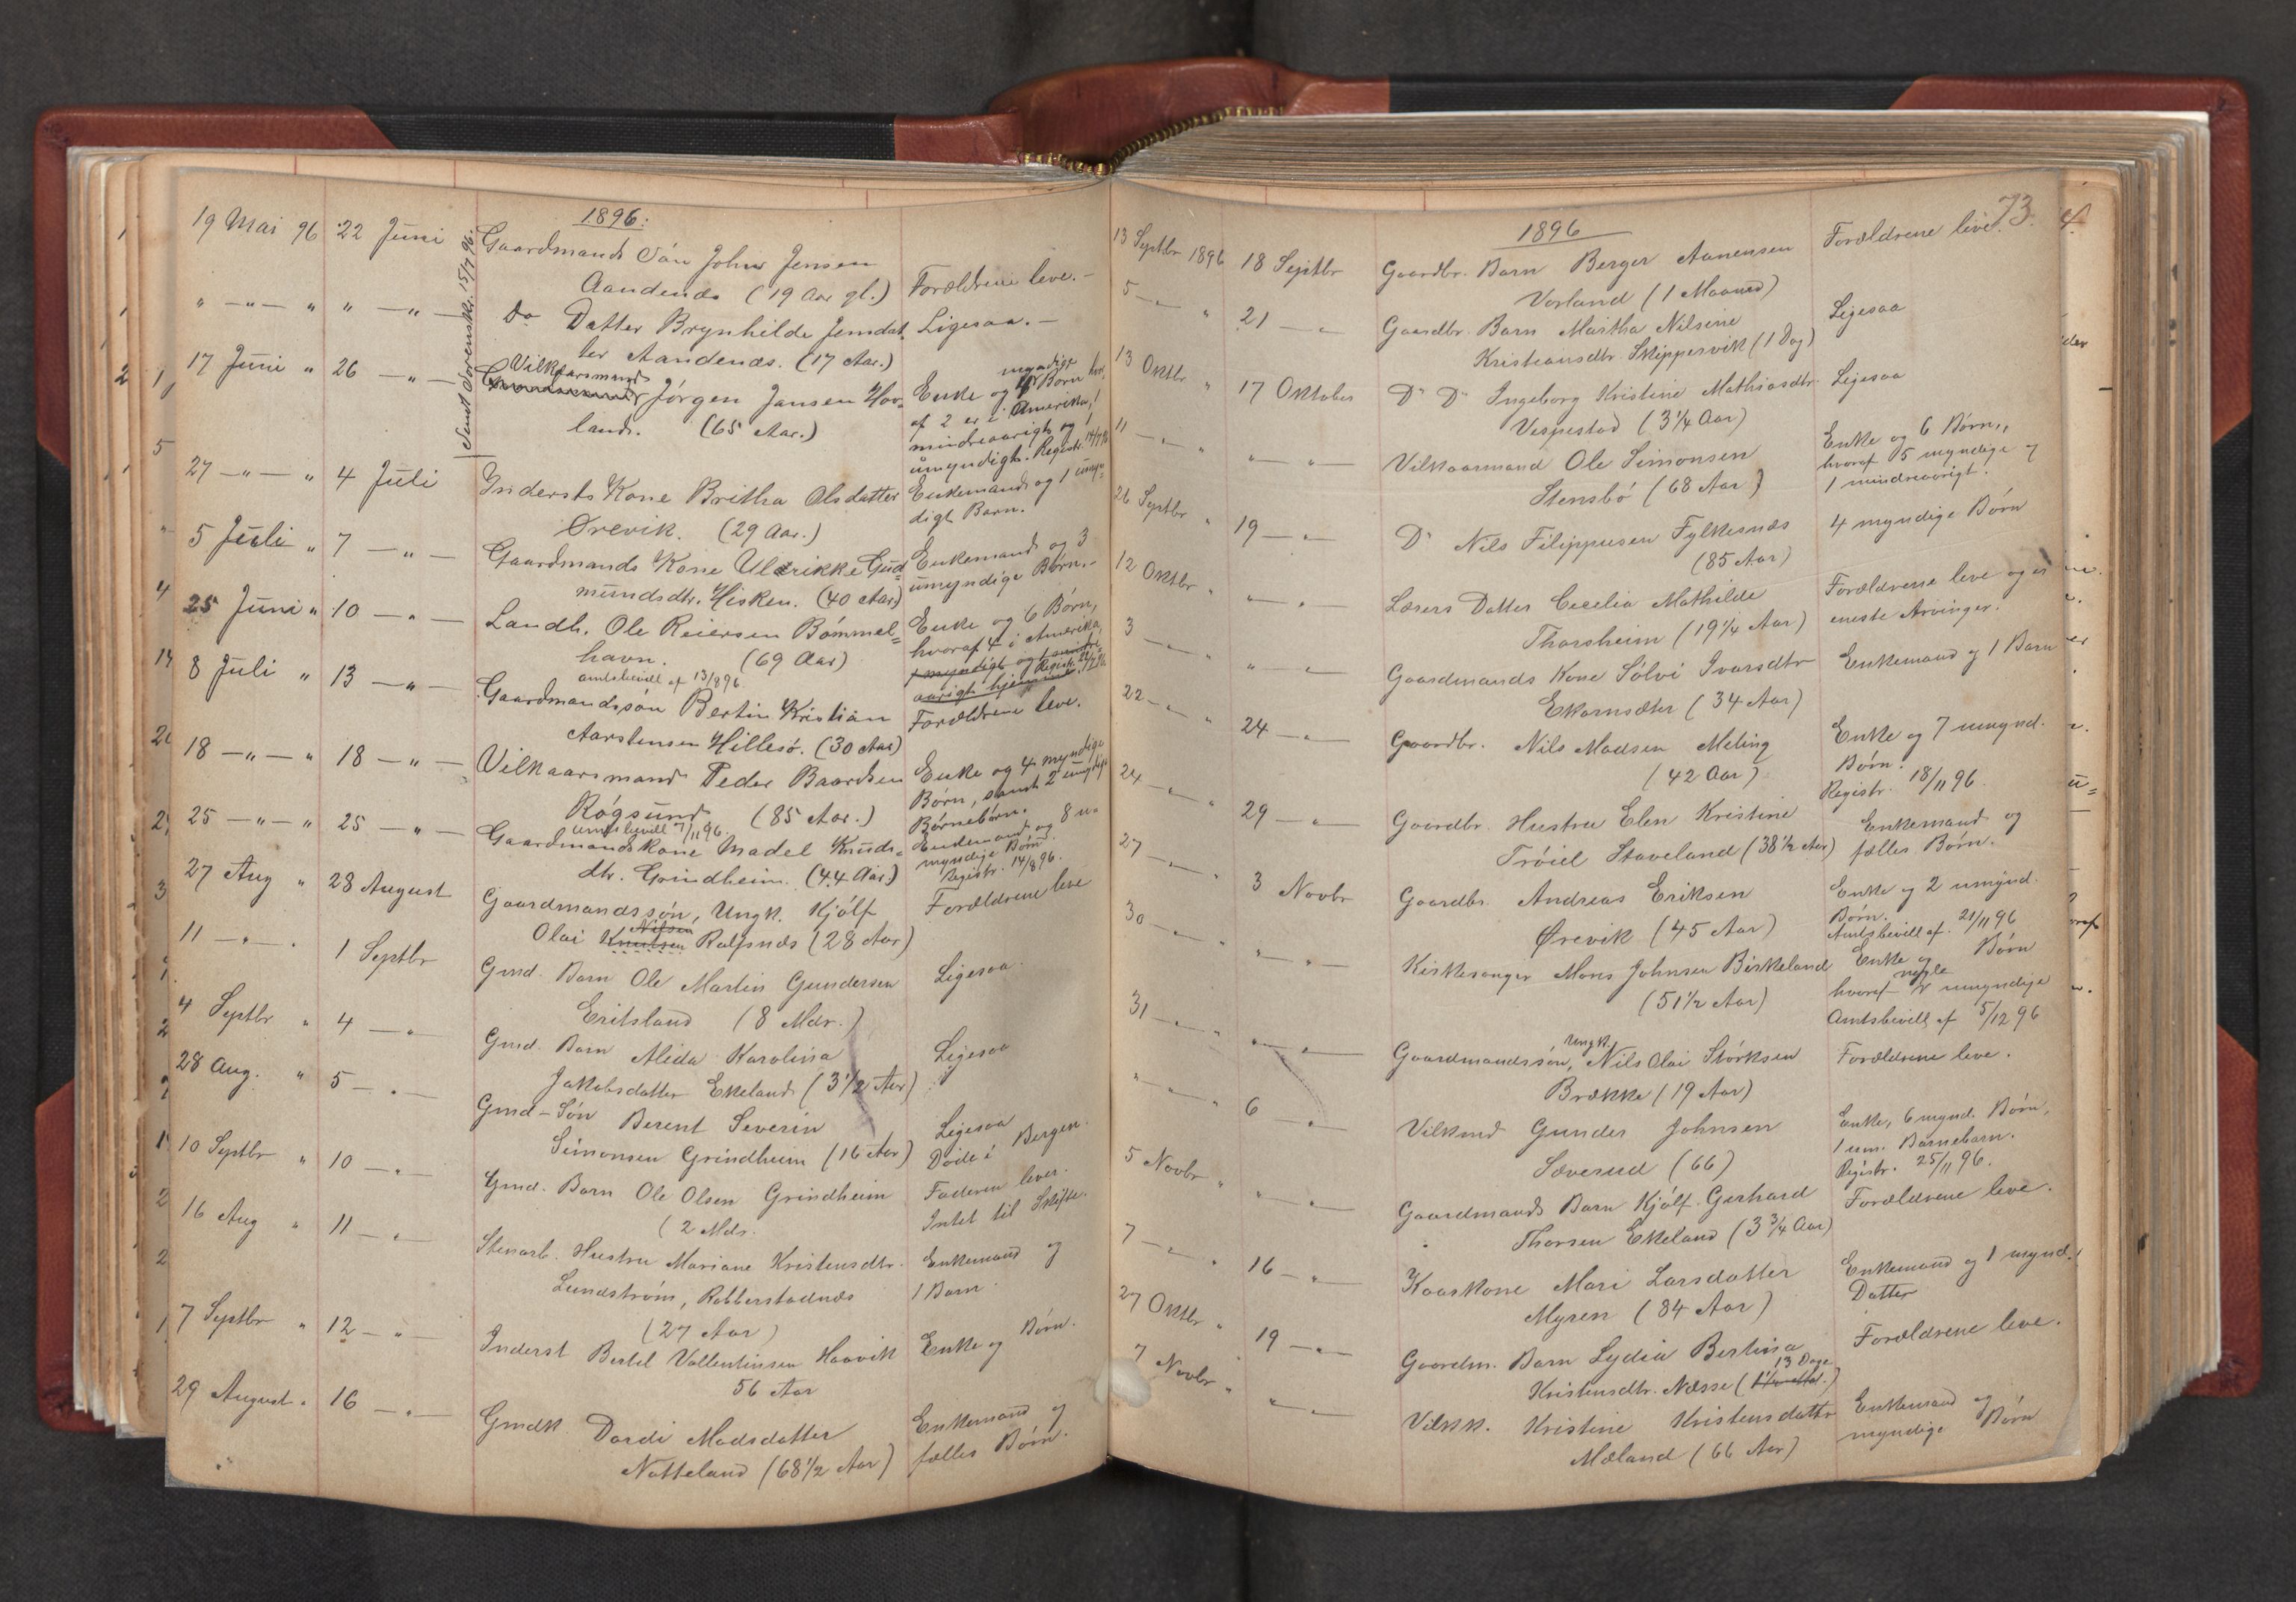 1896:
19 Mai 96 22 Juni Gaardmands Sön Johns Jensen
Aandenæs (19 Aar gl.) Forældrene leve.-
" -"- " " -"- Do Datter Brynhilde Jensdat Ligesaa.-
ter Aandenæs. (17 Aar.)
Sendt Sorenskr. 15/7 96.
17 Juni " 26 -"- Vilkaarsmand Jörgen Jansen Hov-
land. (65 Aar.)
Enke og myndige Börn hvor-
af 2 er i Amerika, 1
mindreaarigt og 1
umyndigt. Registr. 14/7 96
27 -"- " 4 Juli Indersts Kone Britha Olsdatter Enkemand og 1 umyn-
Ørevik. (29 Aar.) digt Barn.
5 Juli " 7 -"- Gaardmands Kone Ulrikke Gud- Enkemand og 3
mundsdtr. Hisken. (40 Aar) umyndige Börn.-
25 Juni " 10 -"- Landh. Ole Reiersen Bömmel= Enke og 6 Börn,
havn. (69 Aar) hvoraf 4 i Amerika,
amtsbevill af 13/8 96. 1 myndigt og 1 mindre-
aarigt hjemme. Registr. 22/7 96
8 Juli " 13 -"- Gaardmandssön Bertin Kristian Forældrene leve.
Aarstensen Hillesö. (30 Aar)
18 -"- " 18 -"- Vilkaarsmand Peder Baardsen Enke og 4 myndige
Rögsund (85 Aar.) Börn, samt 2 umyndige
Börnebörn.
amtsbevill 7/11 96.
25 -"- " 25 -"- Gaardmandskone Madel Knuds= Enkemand og 8 u=
dtr. Grindheim. (44 Aar) myndige Börn
Registr. 14/8 96.
27 Aug " 28 August Gaardmandssön, Ungk. Kjölf Forældrene leve
Nilsen
Olai Knutsen Ralfsnæs (28 Aar)
11 -"- 1 Septbr Gmd. Barn Ole Martin Gundersen Ligesaa.
Eritsland (8 Mdr.)
4 Septbr " 4 -"- Gmd. Barn Alida Karolina Ligesaa
Jakobsdatter Ekeland (3 1/2 Aar)
28 Aug. " 5 -"- Gmd-Sön Berent Severin Ligesaa
Simonsen Grindheim (16 Aar) Döde i Bergen.
10 Septbr " 10 -"- Gmd. Barn Ole Olsen Grindheim Faderen lever.
(2 Mdr. Intet til Skifte.
16 Aug " 11 -"- Stenarb. Hustru Mariane Kristensdtr. Enkemand og
Lundström, Robberstadnæs 1 Barn.
(27 Aar)
7 Septbr " 12 -"- Inderst Bertel Vallentinsen Haavik Enke og Börn.
56 Aar
29 August " 16 -"- Gmdk. Dordi Madsdatter Enkemand og
Natteland (68 1/2 Aar) fælles Börn.
73.
1896
13 Septbr 1896 18 Septbr Gaardbr. Barn Berger Aanensen Forældrene leve.
Vorland (1 Maaned)
5 -"- " 21 -"- Gaardbr. Barn Martha Nilsine Ligesaa
Kristiansdtr Skippersvik (1 Dag)
13 Oktbr " 17 Oktober Do Do Ingeborg Kristine Mathiasdtr. Ligesaa
Vespestad (3 1/4 Aar)
11 -"- " -"- Vilkaarmand Ole Simonsen Enke og 6 Börn,
Stensbö (68 Aar) hvoraf 5 myndige og
1 mindreaarigt.
26 Septbr " 19 -"- Do Nils Filippusen Fylkesnæs 4 myndige Börn
(85 Aar)
12 Oktbr " -"- Lærers Datter Cecelia Mathilde Forældrene leve og er
Thorsheim (19 1/4 Aar) eneste Arvinger.
3 -"- -"- Gaardmands Kone Sölvi Ivarsdtr Enkemand og 1 Barn
Ekornsæter (34 Aar)
22 -"- " 24 -"- Gaardbr. Nils Madsen Meling Enke og 7 umynd.
(42 Aar) Börn.
Registr. 18/11 96.
24 -"- " 29 -"- Gaardbr. Hustru Elen Kristine Enkemand og
Tröiel Staveland (38 1/2 Aar) fælles Börn.
27 -"- " 3 Novbr Gaardbr. Andreas Eriksen Enke og 2 umynd.
Ørevik (45 Aar) Börn.
Amtsbevill af 21/11 96
30 -"- -"- Kirkesanger Mons Johnsen Birkeland Enke og Börn
(51 1/2 Aar) hvoraf nogle umyndige
Amtsbevill af 5/12 96
31 -"- " -"- Ungk.
Gaardmandssön, Nils Olai Störksen Forældrene leve.
Brække (19 Aar)
" -"- " 6 -"- Vilkmd Gunder Johnsen Enke, 6 mynd. Börn,
Sæverud (66) 1 um. Barnebarn.
Registr. 25/11 96.
5 Novbr " -"- Gaardmands Barn Kjölf Gerhard Forældrene leve.
Thorsen Ekeland (3 3/4 Aar)
7 -"- " 16 -"- Kaarkone Mari Larsdatter Enkemand og 1 mynd.
Myren (84 Aar) Datter
27 Oktbr " 19 -"- Gaardm. Barn Lydia Bertina Forældrene leve.
13 Dage
Kristensdtr. Næsse ( )
7 Novbr " -"- Vilkk. Kristine Kristensdatter Enkemand og
Mæland (66 Aar) myndige Börn